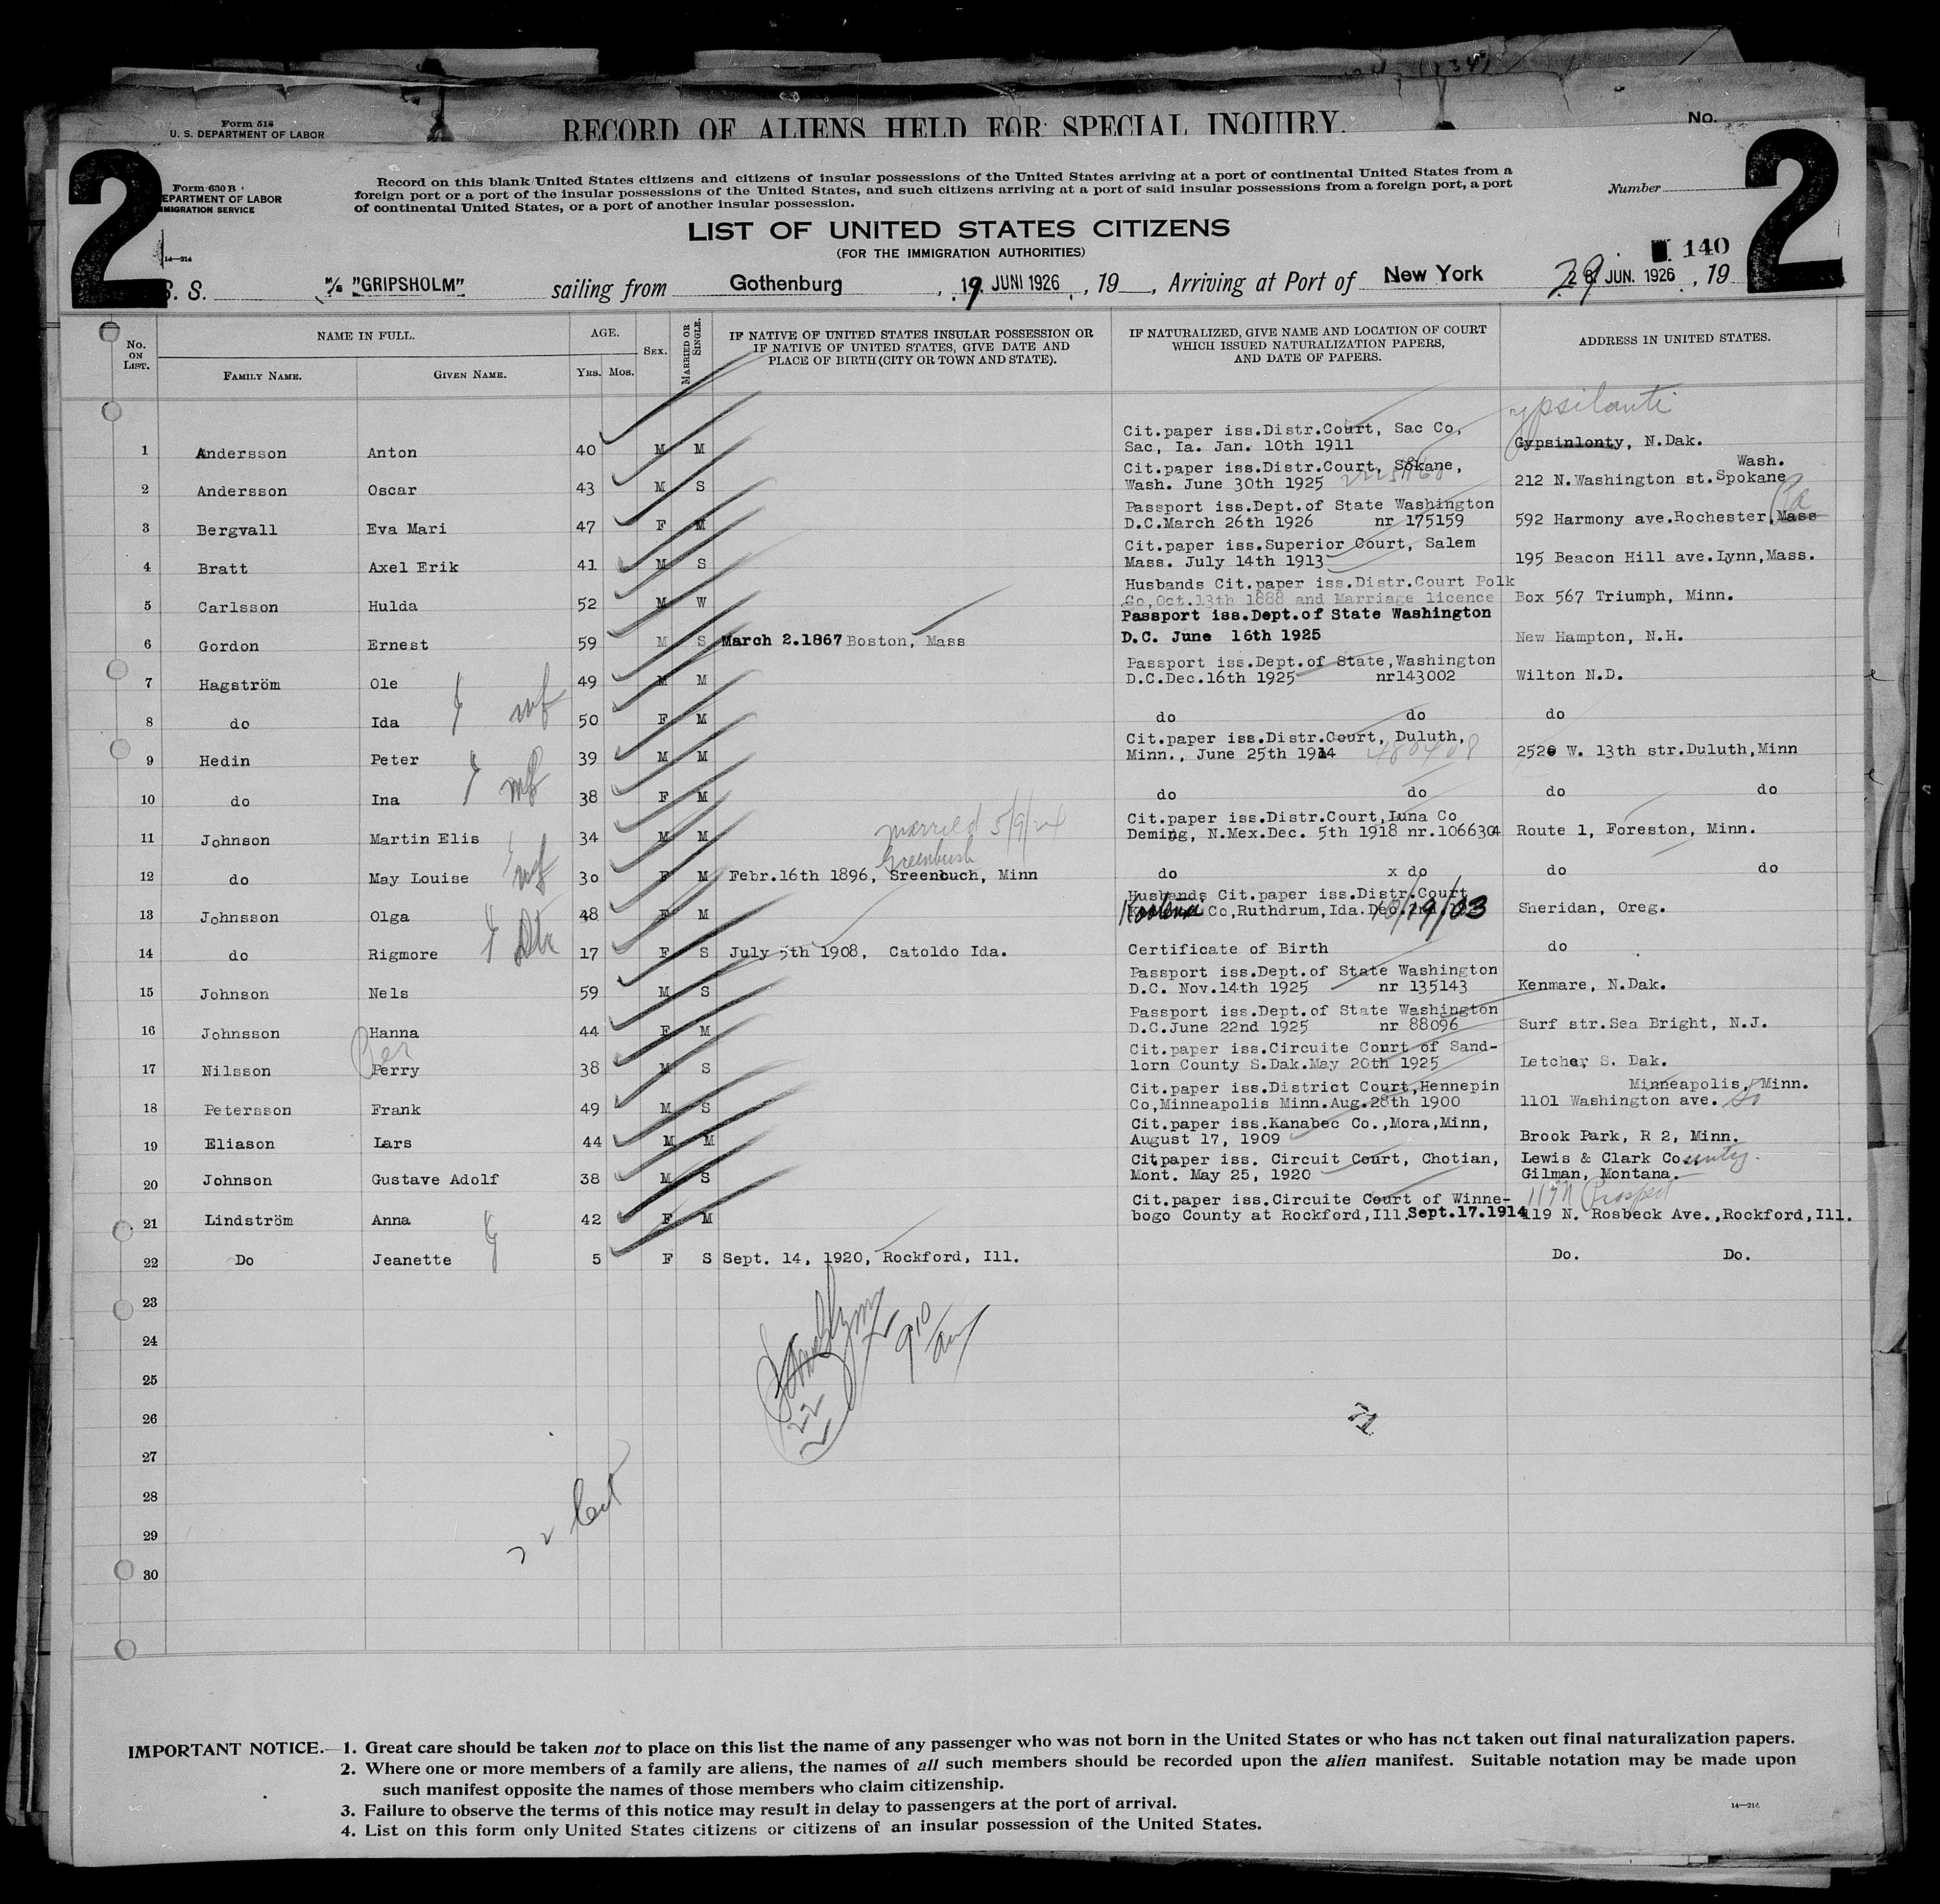 Form 518
U. S. DEPARTMENT OF LABOR
RECORD OF ALIENS HELD FOR SPECIAL INQUIRY.
No.
2
2
Form 630 B
DEPARTMENT OF LABOR
IMMIGRATION SERVICE
14—214
Record on this blank United States citizens and citizens of insular possessions of the United States arriving at a port of continental United States from a
foreign port or a port of the insular possessions of the United States, and such citizens arriving at a port of said insular possessions from a foreign port, a port
of continental United States, or a port of another insular possession.
Number
LIST OF UNITED STATES CITIZENS
(FOR THE IMMIGRATION AUTHORITIES)
140
S. S. M/S "GRIPSHOLM" sailing from Gothenburg, 19. JUNI 1926, 19 , Arriving at Port of New York 29 JUN. 1926, 19
No. ON LIST.
NAME IN FULL.
FAMILY NAME.
GIVEN NAME.
AGE.
YRS. MOS.
SEX.
MARRIED OR SINGLE.
IF NATIVE OF UNITED STATES INSULAR POSSESSION OR
IF NATIVE OF UNITED STATES, GIVE DATE AND
PLACE OF BIRTH (CITY OR TOWN AND STATE).
IF NATURALIZED, GIVE NAME AND LOCATION OF COURT
WHICH ISSUED NATURALIZATION PAPERS,
AND DATE OF PAPERS.
ADDRESS IN UNITED STATES.
ypsilanti
Cit.paper iss.Distr.Court, Sac Co,
1 Andersson Anton 40 M M Sac, Ia. Jan. 10th 1911 Gypsinlonty, N.Dak.
Cit.paper iss.Distr.Court, Sokane, Wash.
2 Andersson Oscar 43 M S Wash. June 30th 1925 212 N.Washington st.Spokane
Passport iss.Dept.of State Washington Pa
3 Bergvall Eva Mari 47 F M D.C.March 26th 1926 nr 175159 592 Harmony ave.Rochester,Mass
Cit.paper iss.Superior Court, Salem
4 Bratt Axel Erik 41 M S Mass. July 14th 1913 195 Beacon Hill ave.Lynn,Mass.
Husbands Cit.paper iss.Distr.Court Polk
5 Carlsson Hulda 52 M W Co,Oct.13th 1888 and Marriage licence Box 567 Triumph, Minn.
Passport iss.Dept.of State Washington
6 Gordon Ernest 59 M S March 2.1867 Boston, Mass D.C. June 16th 1925 New Hampton, N.H.
Passport iss.Dept.of State,Washington
7 Hagström Ole 49 M M D.C.Dec.16th 1925 nr143002 Wilton N.D.
8 do Ida wf 50 F M do do do
Cit.paper iss.Distr.Court, Duluth,
9 Hedin Peter 39 M M Minn., June 25th 1914 480408 2520 W. 13th str.Duluth,Minn
10 do Ina wf 38 F M do do do do
married 5/9/24 Cit.paper iss.Distr.Court,Luna Co
11 Johnson Martin Elis 34 M M Deming, N.Mex.Dec. 5th 1918 nr.1066304 Route 1, Foreston, Minn.
Greenbush
12 do May Louise wf 30 F M Febr.16th 1896, Sreenbuch, Minn do x do do do
Husbands Cit.paper iss.Distr.Court
13 Johnsson Olga 48 F M Co,Ruthdrum,Ida. 10/19/03 Sheridan, Oreg.
14 do Rigmore Dtr 17 F S July 5th 1908, Catoldo Ida. Certificate of Birth do
Passport iss.Dept.of State Washington
15 Johnson Nels 59 M S D.C. Nov.14th 1925 nr 135143 Kenmare, N.Dak.
Passport iss.Dept.of State Washington
16 Johnsson Hanna 44 F M D.C.June 22nd 1925 nr 88096 Surf str.Sea Bright, N.J.
Per Cit.paper iss.Circuite Court of Sand-
17 Nilsson Perry 38 M S lorn County S.Dak.May 20th 1925 Letcher S. Dak.
Cit.paper iss.District Court,Hennepin Minneapolis, Minn.
18 Petersson Frank 49 M S Co,Minneapolis Minn.Aug.28th 1900 1101 Washington ave. So
Cit.paper iss.Kanabec Co.,Mora,Minn,
19 Eliason Lars 44 M M August 17, 1909 Brook Park, R 2, Minn.
Citpaper iss. Circuit Court, Chotian, Lewis & Clark County.
20 Johnson Gustave Adolf 38 M S Mont. May 25, 1920 Gilman, Montana.
Cit.paper iss.Circuite Court of Winne- 119 N Prospect
21 Lindström Anna 42 F M bogo County at Rockford,Ill.Sept.17.1914 119 N. Rosbeck Ave.,Rockford,Ill.
22 Do Jeanette 5 F S Sept. 14, 1920, Rockford, Ill. Do. Do.
23
24
910
25
26
22
71
27
28
29
30
IMPORTANT NOTICE.—1. Great care should be taken not to place on this list the name of any passenger who was not born in the United States or who has not taken out final naturalization papers.
2. Where one or more members of a family are aliens, the names of all such members should be recorded upon the alien manifest. Suitable notation may be made upon
such manifest opposite the names of those members who claim citizenship.
3. Failure to observe the terms of this notice may result in delay to passengers at the port of arrival.
14—214
4. List on this form only United States citizens or citizens of an insular possession of the United States.